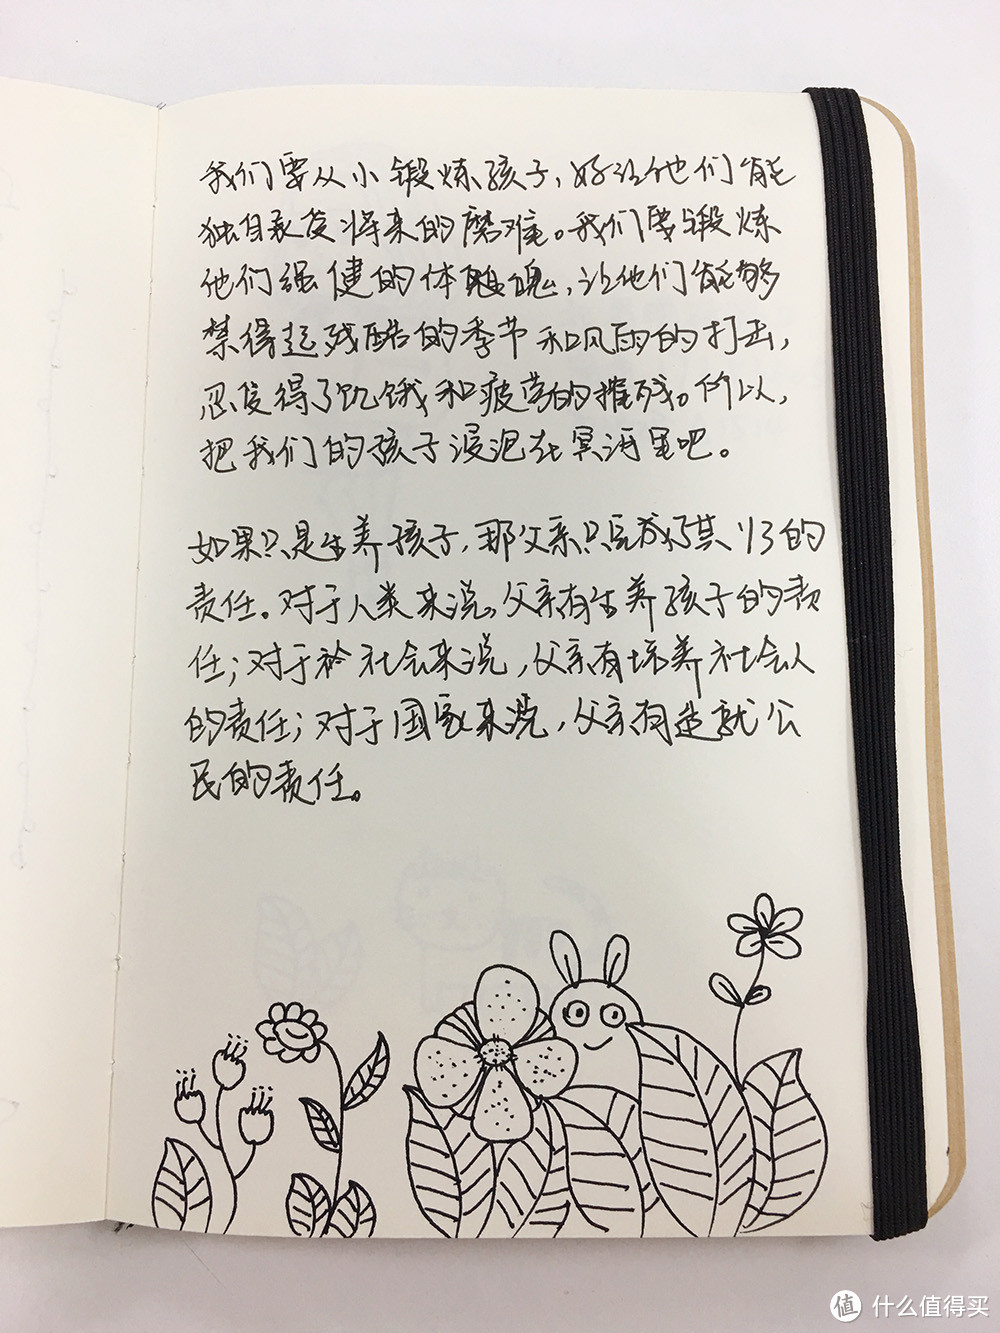 我们要从小锻炼孩子，好让他们能
独自承受将来的磨难。我们要锻炼
他们强健的体魄，让他们能够
禁得起残酷的季节和风雨的打击，
忍受得了饥饿和疲劳的摧残。所以，
把我们的孩子浸泡在冥河里吧。
如果只是生养孩子，那父亲只完成了其1/3的
责任。对于人类来说，父亲有生养孩子的责
任；对于社会来说，父亲有培养社会人
的责任；对于国家来说，父亲有造就公
民的责任。
值 什么值得买